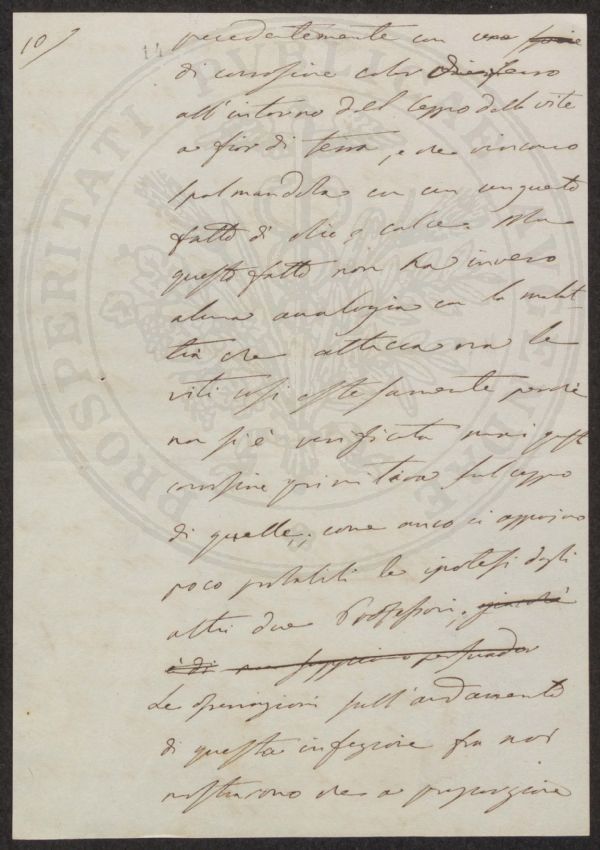 10
11
precedentemente con una specie
di corrosione color di ferro
all'intorno del ceppo della vite
a fior di terra, e che vincono
spalmandola con un unguento
fatto d'olio, e calce. Ma
questo fatto non ha invero
alcuna analogia con la malat-
tia che attacca ora le
viti così estesamente perchè
non si è verificata mai questa
corrosione primitiva sul ceppo
di quelle; come anco ci appaiono
poco probabili le ipotesi degli
altri due Professori, giacchè
è di
Le operazioni sull'andamento
di questa infezione fra noi
mostrarono che a proporzione
PROSPERITATI PUBLICAE AUGENDAE